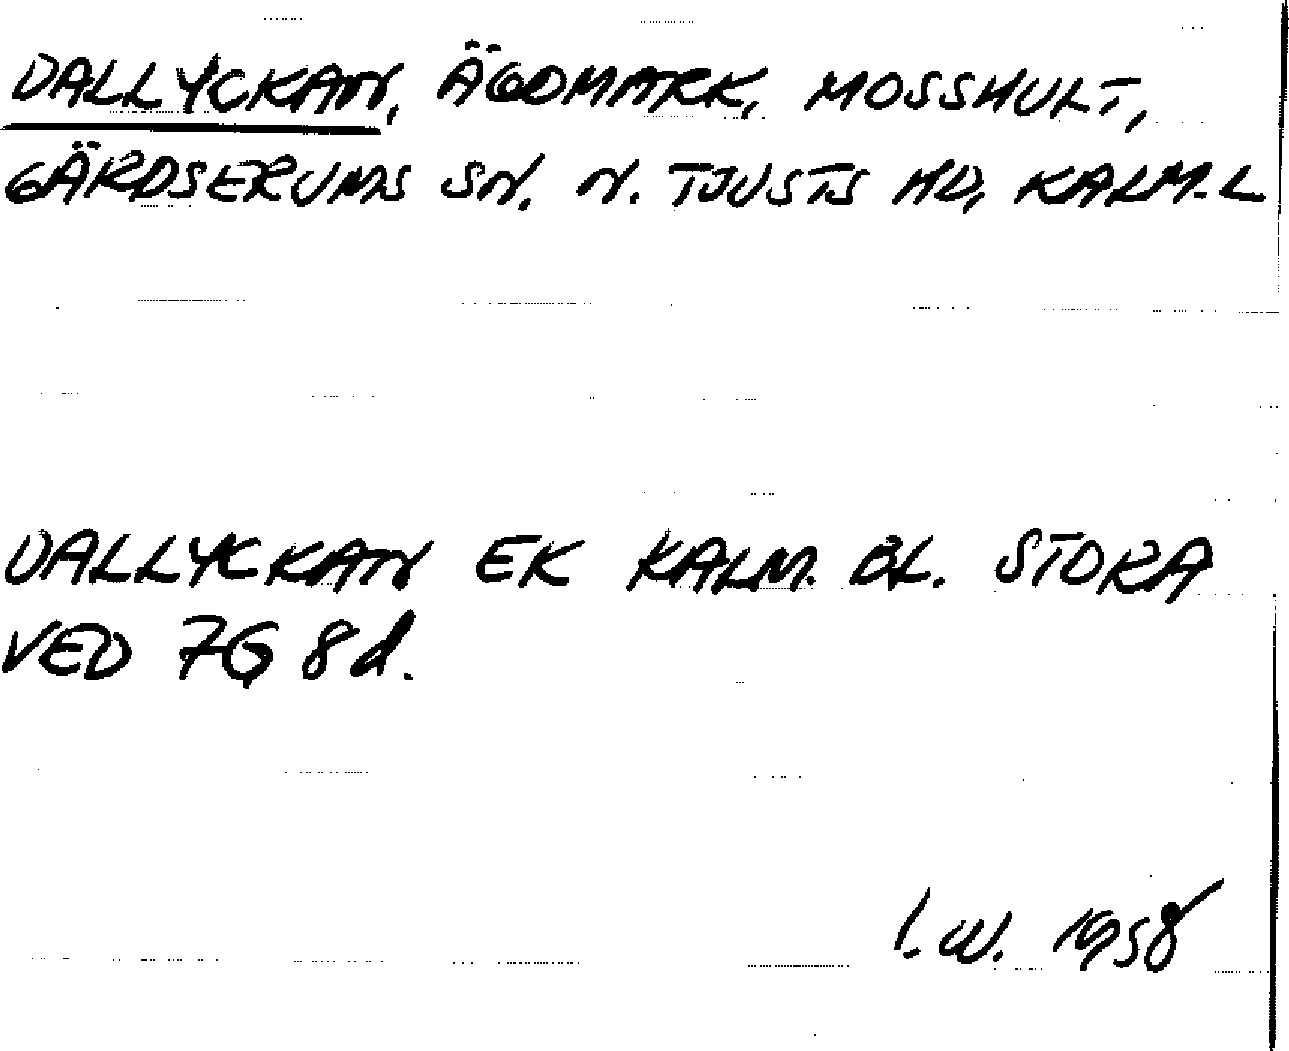 DALLYCKAN, ÄGOMARK, MOSSHULT,
GÄRDSERUMS SN. N. TJUSTS HD, KALM. L
DALLYCKAN EK KALM. BL. STORA
VED 7G 8d.
I. W. 1958